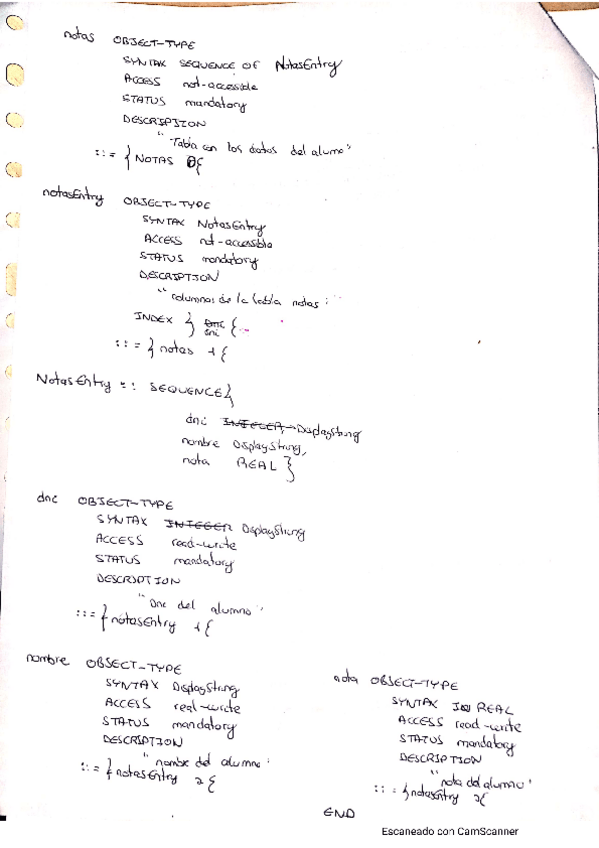 notas OBJECT-TYPE
SYNTAX SEQUENCE OF NotasEntry
ACCESS not-accessible
STATUS mandatory
DESCRIPTION
"Tabla con los datos del alumno"
::= { NOTAS 0 {
notasEntry OBJECT-TYPE
SYNTAX NotasEntry
ACCESS not-accessible
STATUS mandatory
DESCRIPTION
"columnas de la tabla notas"
INDEX } {
::= } notas 1 {
NotasEntry :: SEQUENCE {
dni INTEGER, DisplayString
nombre DisplayString,
nota REAL }
dni OBJECT-TYPE
SYNTAX INTEGER DisplayString
ACCESS read-write
STATUS mandatory
DESCRIPTION
"Dni del alumno"
::= { notasEntry 1 {
nombre OBJECT-TYPE
SYNTAX DisplayString
ACCESS real-write
STATUS mandatory
DESCRIPTION
"nombre del alumno"
::= } notasEntry 2 {
nota OBJECT-TYPE
SYNTAX REAL
ACCESS read-write
STATUS mandatory
DESCRIPTION
"nota del alumno"
::= } notasEntry 2 {
END
Escaneado con CamScanner